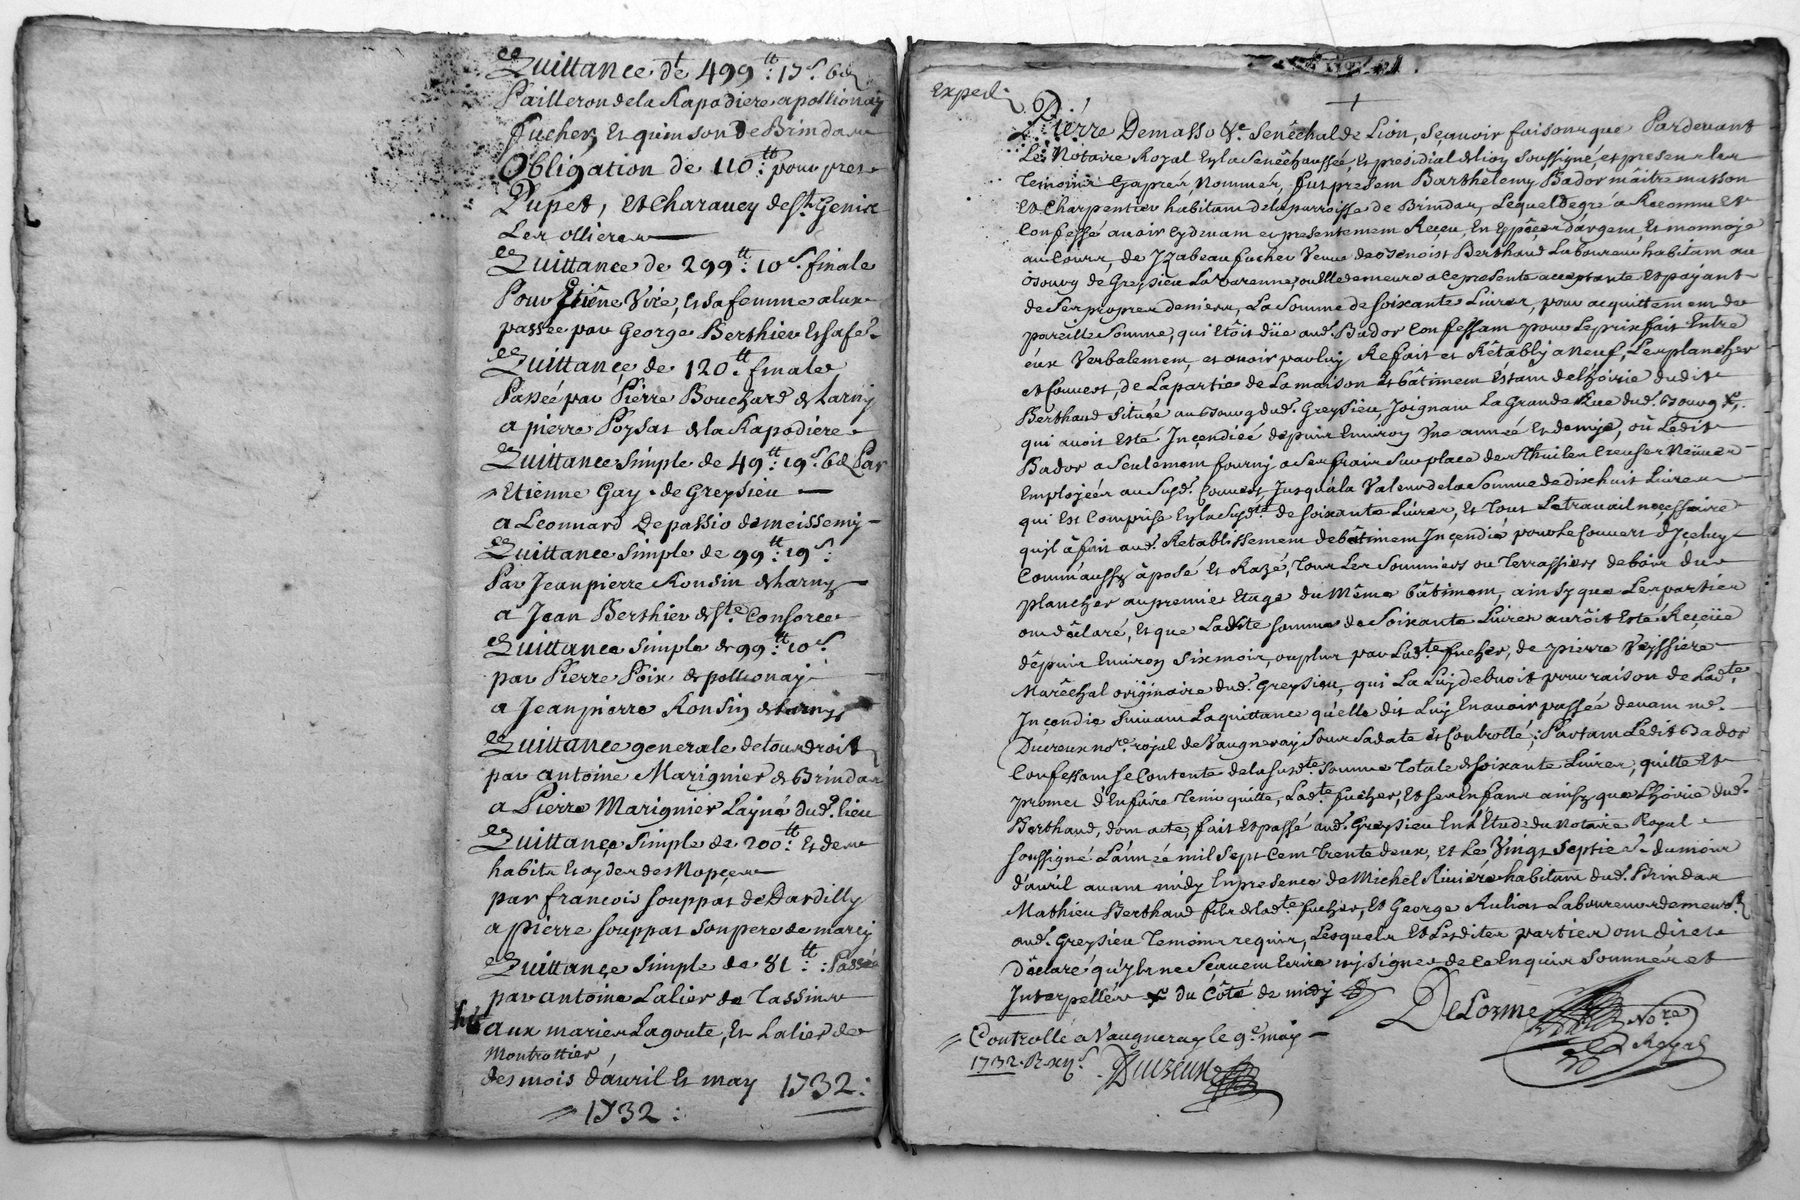 Quittance de 499tt: 17s. 6d
Pailleron de la Rapodiere a pollionay
fucher, Et quinson de Brindas
Obligation de 110tt: pour pres
Dupet, et Charauey de st. Genix
Les ollieres
Quittance de 299tt: 10s. finale
Pour Etiêne Viré, et sa femme a lux
passée par George Berthier et sa fe.
Quittance de 120tt. finale
Passée par Pierre Bouchard de larny
a pierre Poysat de la Rapodiere
Quittance simple de 49tt: 19s. 6d Par
Etienne Gay de Greysieu
a Leonnard Depassio de meissemy
Quittance simple de 99tt: 19s.
Par Jeanpierre Ronsin de larny
a Jean Berthier de ste. Consorce
Quittance simple de 99tt: 10s.
par Pierre Poix de pollionay
a Jeanpierre Ronsin de larny
Quittance generale de tous droits
par antoine Marignier de Brindas
a Pierre Marignier Layné dud. lieu
Quittance simple de 200tt. Et de
habits et aydes de Nopces
par francois souppat de Dardilly
a pierre souppat son pere de marcy
Quittance simple de 81tt: Passée
par antoine Lalier de Tassins
aux mariez Lagoute, Et Lalier de
Montrottier,
des mois d'avril Et may 1732:
1732:
Exped.
Pierre Demasso &c. Senêchal de Lion, Sçauoir faisons que Pardeuant
Les Notaire Royal En la Senêchaussée, Et presidial de lion soussigné, et presens les
temoins Cy aprés, Nommés, fut present Barthelemy Bador maitre masson
Et Charpentier habitant de la parroisse de Brindas, Lequel de gré a Reconnu Et
Confessé auoir Cy deuant et presentement Reçeu, En Espêces d'argent, Et monnoye
au Cours, de Izabeau fucher Veuue de Benoist Berthaud Laboureur habitant au
bourg de Greysieu La Varenne, ou Elle demeure a ce presente acceptante Et payant
de ses propres deniers, La somme de soixante Liures, pour acquittement de
pareille somme, qui Etôit düe aud. Bador Confessant pour Le prix fait Entre
eux Verbalement, et auoir par luy Refait et Rêtably a neuf, Les plancher
et Couuert, de La partie de La maison et bâtiment Estant de l'hoirie dudit
Berthaud située au bourg dud. Greysieu, Joignant La Grande Rue dud. bourg &c.
qui auoit Esté Inçendiée depuis Enuiron Vne année Et demye, où Ledit
Bador a seulement fourny a ses frais sur place des thuiles Creuses Neuues
Employées au susd. Couuert Jusqu'a la Valeur de la somme de dix huit Liures
qui Est Comprise En la susd.te de soixante Liures, Et tout Le trauail neçessaire
qu'il â fait aud. Retablissement de bâtiment Inçendié pour Le Couuert d'Içeluy
Comm'aussy àposé Et Razé, tous Les sommiers ou Terrassiers de bois du
plancher au premie Etage du Même bâtiment, ainsy que Les parties
ont dêclaré, Et que Ladite somme de Soixante Liures aurôit Esté Reçeüe
dêpuis Enuiron six mois, ou plus par Lad.te fucher, de pierre Veyssiere
Marêchal originaire dud. Greysieu, qui La Luy debuoit pour raison de Lad.te
Inçendie suiuant La quittance qu'elle dit Luy En auoir passée deuant me.
Ducreux nore. royal de Vaugneray sous sa date Et Controlle; Partant Ledit Bador
Confessant se Contente de la susd.te somme totale de soixante Liures, quitte Et
promet d'En faire tenir quitte, Lad.te fucher, Et ses Enfans ainsy que L'hoirie dud.
Berthaud, dont acte, fait Et passé aud. Greysieu En L'Etude du Notaire Royal
soussigné L'année mil sept Cent trente deux, Et Le Vingt septie. du mois
d'auril auant midy En presence de Michel Riuiere habitant dud. Brindas
Mathieu Berthaud fils de lad.te fucher, Et George Rulliat Laboureur demeurt.
aud. Greysieu temoins requis, Lesquels Et Lesdites parties ont dit et
dêclaré qu'ils ne Sçauent Ecrire ny signer de ce Enquis Sommés et
Interpellés & du Côté de midy
DeLorme
Nore
Royal
Controlle a Vaugneray le 9e. may
1732. R. xys.
Ducreux